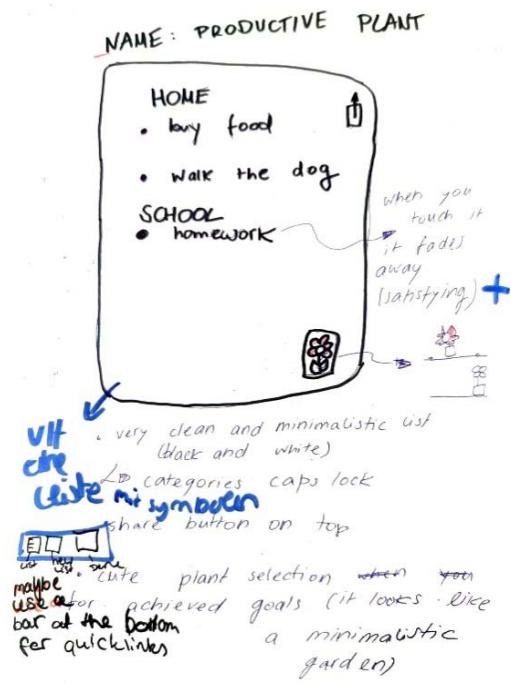 NAME: PRODUCTIVE PLANT
HOME
• buy food
• walk the dog
SCHOOL
• homework
when you
touch it
it fades
away
(satisfying) +
• very clean and minimalistic list
(black and white)
categories caps lock
share button on top
Leiste mit symbolen
list new list
maybe
use a
bar at the bottom
for quicklinks
• cute plant selection when you
for achieved goals (it looks like
a minimalistic
garden)